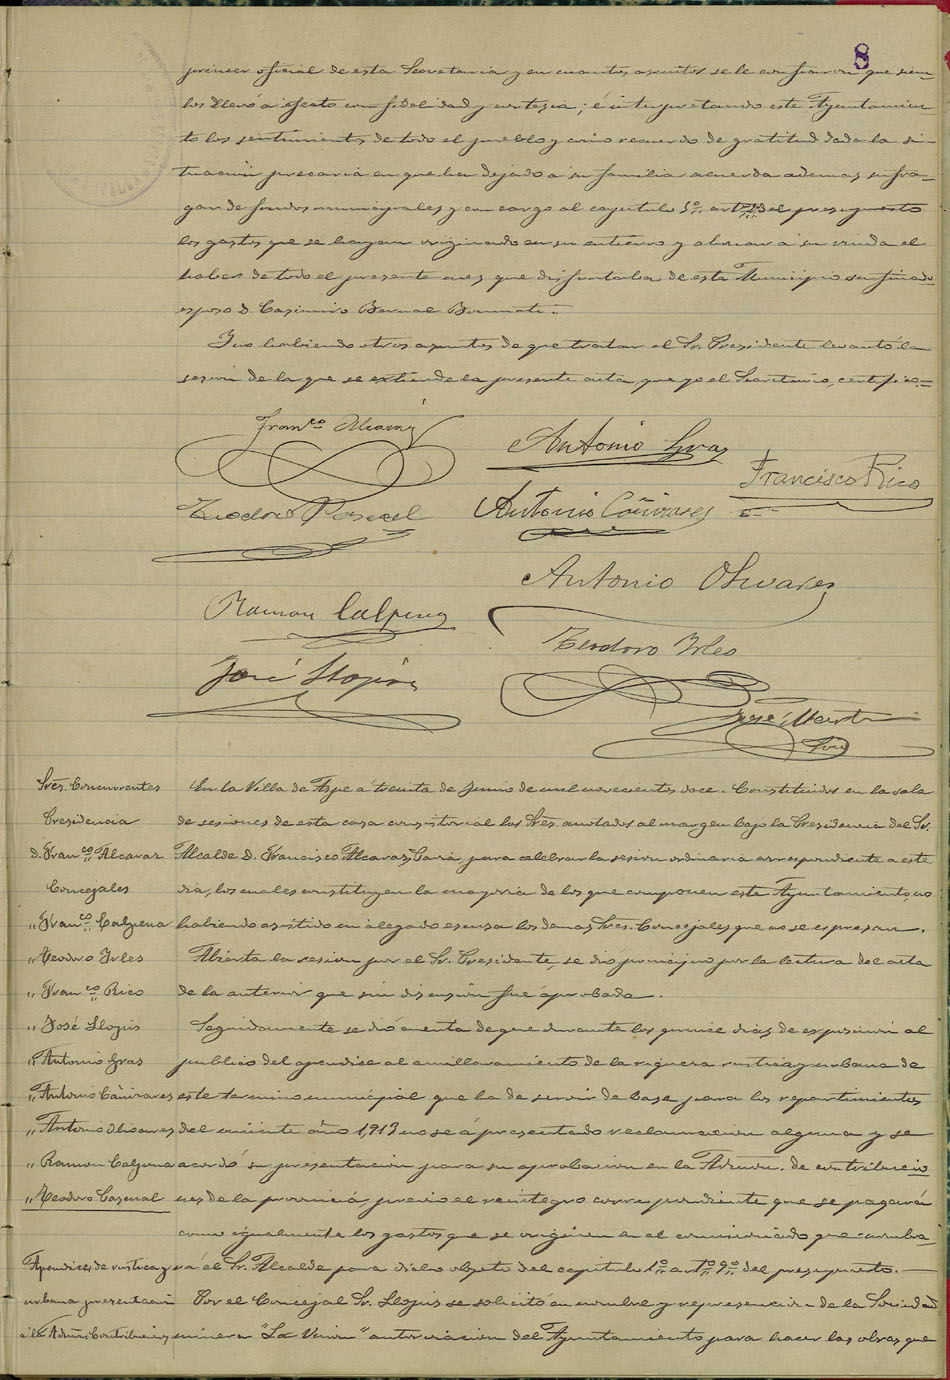 8
primer oficial de esta Secretaria y en cuantos asuntos se le confiaron que siem-
los llevó a efecto con fidelidad y cortesia; é interpretando este Ayuntamien-
to los sentimientos de todo el pueblo y como recuerdo de gratitud dada la si-
tuación precaria en que ha dejado á su familia acuerda ademas, sufra-
gar de fondos municipales y con cargo al capitulo 5º artº del presupuesto
los gastos que se hayan originado en su entierro y abonar á su viuda el
haber de todo el presente mes, que disfrutaba de este Municipio su finado
esposo D. Casimiro Bernal
Y no habiendo otros asuntos de que tratar el Sr. Presidente levantó la
sesion de la que se extiende la presente acta, que yo el Secretario, certifico.=
Franco Alcaraz
Antonio Gras
Francisco Rico
Teodoro Pascual
Antonio Cañizares
Antonio Olivares
Ramon Calpena
Teodoro Irles
José Llopis
José Martí
Srio
Sres. Concurrentes
Presidencia
D. Franco Alcaraz
Concejales
" Franco Calpena
" Teodoro Irles
" Franco Rico
" José Llopis
" Antonio Gras
" Antonio Cañizares
" Antonio Olivares
" Ramon Calpena
" Teodoro Pascual
Apendices de rustica y
urbana presentacion
á la Admon Contribuciones
En la Villa de Aspe á treinta de Junio de mil novecientos doce. Constituidos en la sala
de sesiones de esta casa consistorial los Sres. anotados al margen bajo la Presidencia del Sr.
Alcalde D. Francisco Alcaraz para celebrar la sesion ordinaria correspondiente a este
dia, los cuales constituyen la mayoria de los que componen este Ayuntamiento, no
habiendo asistido ni alegado escusa los demas Sres. Concejales que no se expresan.
Abierta la sesion por el Sr. Presidente, se dió principio por la lectura del acta
de la anterior que sin discusion fué aprobada.
Seguidamente se dió cuenta de que durante los quince dias de exposicion al
publico del apendice al amillaramiento de la riqueza rustica y urbana de
este termino municipal que ha de servir de base para los repartimientos
del año 1,913 no se á presentado reclamacion alguna y se
acordó su presentacion para su aprobacion en la Admon. de contribucio
nes de la provincia, previo el reintegro correspondiente que se pagará
como igualmente los gastos que se originen en el comisionado que nombra-
rá el Sr. Alcalde para dicho objeto del capitulo 1º artº 9º del presupuesto.
Por el Concejal Sr. Llopis se solicitó en nombre y representacion de la Sociedad
minera "La Union" autorizacion del Ayuntamiento para hacer las obras que